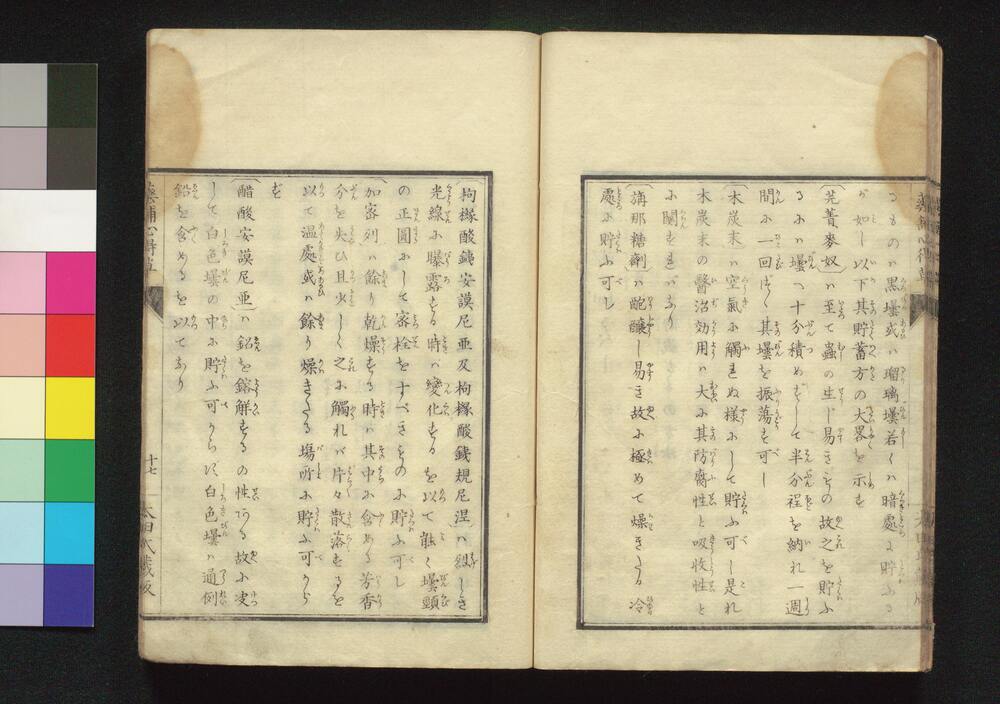 るものハ黒壜或ハ瑠璃壜若くハ暗處に貯ふる
が如し以下其貯蓄方の大畧を示す
芫菁麥奴ハ至て蟲の生し易きもの故之を貯ふ
るにハ壜へ十分積めずして半分程を納れ一週
間に一回づゝ其壜を振蕩す可し
木炭末ハ空氣に觸れぬ様にして貯ふ可し是れ
木炭末の醫治効用ハ大に其防腐性と吸收性と
に關すれバなり
満那糖劑ハ酕釀し易き故に極めて燥きたる冷
處に貯ふ可し
枸櫞酸銕安謨尼亜及枸櫞酸銕規尼涅ハ緞しき
光線に曝露する時ハ變化するを以て能く壜頸
の正圓にして密栓をすべきものに貯ふ可し
加密列ハ餘り乾燥する時ハ其中に含める芳香
分を失ひ且少しく之に觸れバ片々散落するを
以て温處或ハ餘り燥きたる場所に貯ふ可から
ず
醋酸安謨尼亜ハ鉛を鎔解するの性ある故に决
して白色壜の中に貯ふ可からず白色壜ハ通例
鉛を含めるを以てなり
十七
太田氏蔵版